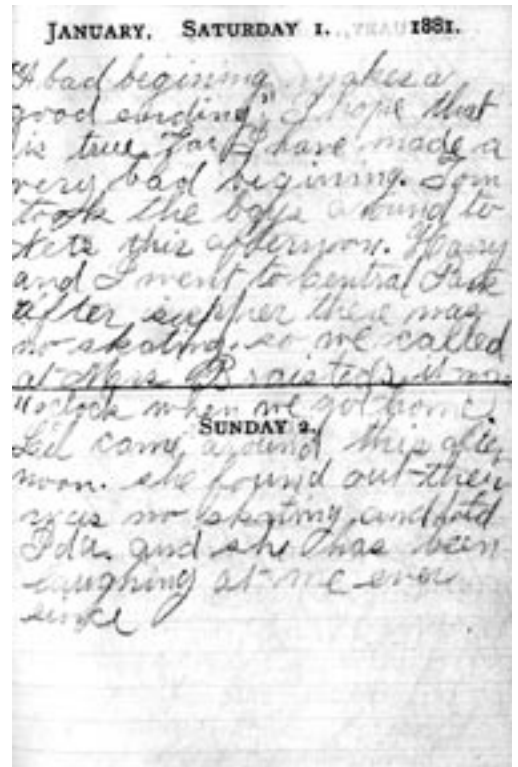 JANUARY, SATURDAY 1. 1881.
"A bad begining makes a
good ending", I hope that
is true for I have made a
very bad begining. Tom
took the boys around to
this afternoon. Harry
and I went to Central Park
after supper there was
no skating. so we called
at Mrs it was
11 oclock when we got home.
SUNDAY 2.
Lil came around this after
noon. she found out there
was no skating and told
Ida. and she has been
laughing at me ever
since